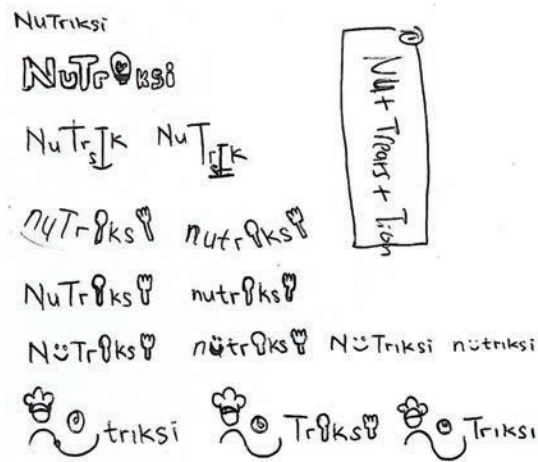 NuTriksi
NuTriksi
NuTrsIk NuTrsIk
nuTriksi nutriksi
NuTriksi nutriksi
NüTriksi nütriksi NüTriksi nütriksi
triksi Triksi Triksi
Nu + Trears + Tion